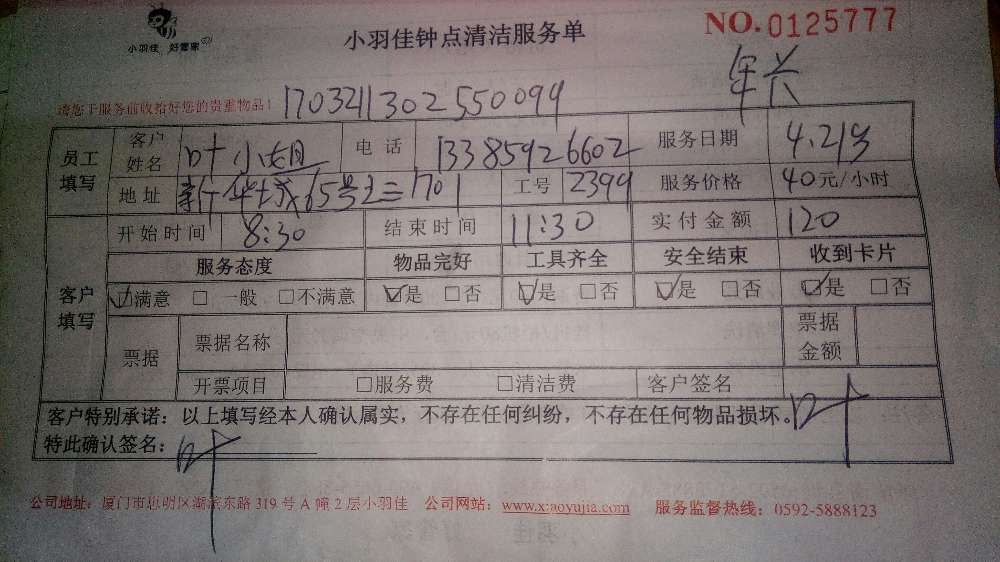 小羽佳 好管家
小羽佳钟点清洁服务单
NO.0125777
年兴
请您于服务前收拾好您的贵重物品!
1703211302550099
员工填写
客户姓名 叶小姐 电话 13385926602 服务日期 4.21号
地址 701 工号 2399 服务价格 40元/小时
客户填写
开始时间 8:30 结束时间 11:30 实付金额 120
服务态度 物品完好 工具齐全 安全结束 收到卡片
☑满意 □一般 □不满意 ☑是 □否 ☑是 □否 ☑是 □否 ☑是 □否
票据 票据名称 票据金额
开票项目 □服务费 □清洁费 客户签名 叶
客户特别承诺:以上填写经本人确认属实,不存在任何纠纷,不存在任何物品损坏。
特此确认签名: 叶
公司地址:厦门市思明区湖滨东路319号A幢2层小羽佳 公司网站:www.xiaoyujia.com 服务监督热线:0592-5888123